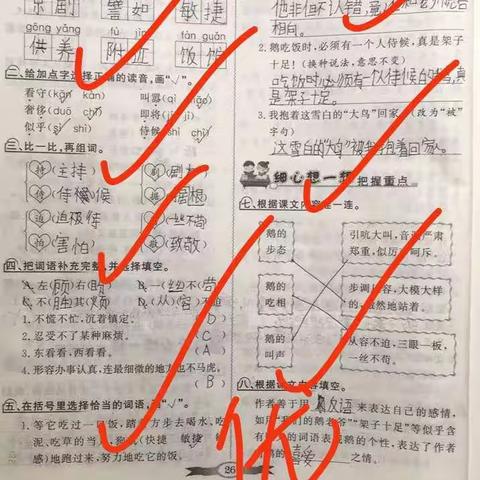 京剧 譬如 敏捷
gōng yǎng fù jìn fàn guǎn
供养 附近 饭馆
二、给加点字选择正确的读音,画“√”。
看守(kān kàn) 叫嚣(qì xiāo)
奢侈(duō chǐ) 即将(jí jì)
似乎(sì shì) 侍候(shì chì)
三、比一比,再组词。
持(主持) 剧(剧
侍(侍候) 据(据
迫(迫 苟(一丝不苟)
怕(害怕) 致(致敬)
四、把词语补充完整,并选择填空。
A.左(顾)右(盼) B.一(丝)不(苟)
C.不(胜)其(烦) D.(从)(容)不迫
1.不慌不忙,沉着镇定。 (D)
2.忍受不了某种麻烦。 (C)
3.东看看,西看看。 (A)
4.形容办事认真,连最细微的地方也不马虎。
(B)
五、在括号里选择恰当的词语,画“√”。
1.等它吃过一口饭,踏方步去喝水,吃
泥、吃草的当儿,狗就(快捷 敏捷
感)地跑过来,努力地吃它的饭。
26
他非但不认错,
相。
2.鹅吃饭时,必须有一个人侍候,真是架子
十足!(换种说法,意思不变)
吃饭时必须有一个人侍候的鹅,真
是架子十足。
3.我抱着这雪白的“大鸟”回家。(改为“被”
字句)
这雪白的“大鸟”被我抱着回家。
细心想一想 把握重点
七、根据课文内容连一连。
鹅的
步态
引吭大叫,音调严肃
郑重,似厉声呵斥。
鹅的
吃相
步调从容,大模大样
的,傲然地站着。
鹅的
叫声
从容不迫,三眼一板,
一丝不苟。
八、根据课文内容填空。
作者善于用 反语 来表达自己的感情,
如用“我们的鹅老爷”“架子十足”等似乎含
有贬义的词语表现鹅的个性,表达了作者
对鹅的 喜爱 之情。
优